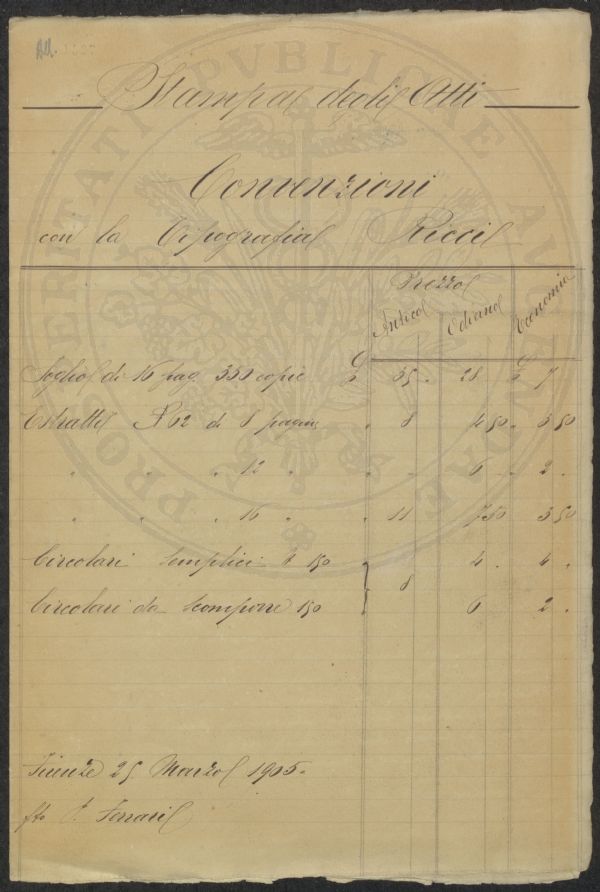 All.
Stampa degli Atti
Convenzioni
con la Tipografia Ricci
Prezzo
Antico Odierno Economia
Foglio di 16 pag. 350 copie £ 35 . 28 £ 7
Estratti N° 62 di 8 pagine " 8 4 50 " 3 50
" " " 12 " " " 6 " 2 .
" " " 16 " " 11 7 50 3 50
Circolari semplici N 150 4 . 4 .
8
Circolari da comporre 150 6 2 .
Firenze 25 Marzo 1905.
fto P. Ferrari
PROSPERITATI PVBLICAE AVGENDAE